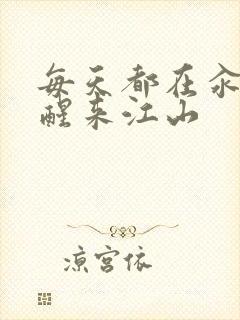 每天都在汆
醒来江山
凉宫依